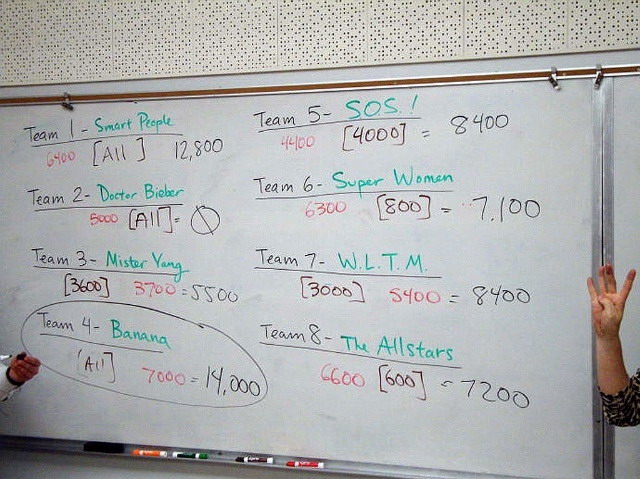 Team 1- Smart People
6400 [All] 12,800
Team 2- Doctor Bieber
5000 [All]= 0
Team 3- Mister Yang
[3600] 3700 =5500
Team 4- Banana
[All] 7000 = 14,000
Team 5- S.O.S.!
4400 [4000] = 8400
Team 6- Super Women
6300 [800] = 7,100
Team 7- W.L.T.M.
[3000] 5400 = 8400
Team 8- The Allstars
6600 [600] = 7200